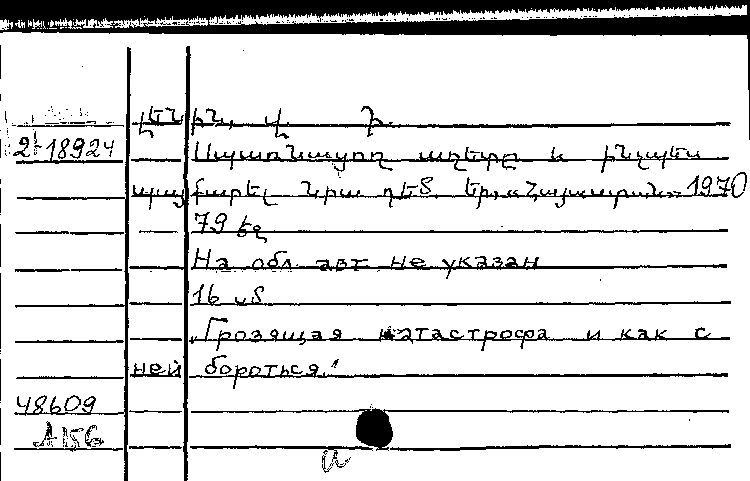 ԼԵՆԻՆ, Վ. Ի.
2-18924
Սպառնացող աղետը և ինչպես
պայքարել նրա դեմ. Եր., «Հայաստան» 1970
79 էջ
На обл. авт. не указан
16
„Грозящая катастрофа и как с
ней бороться."
48609
A156